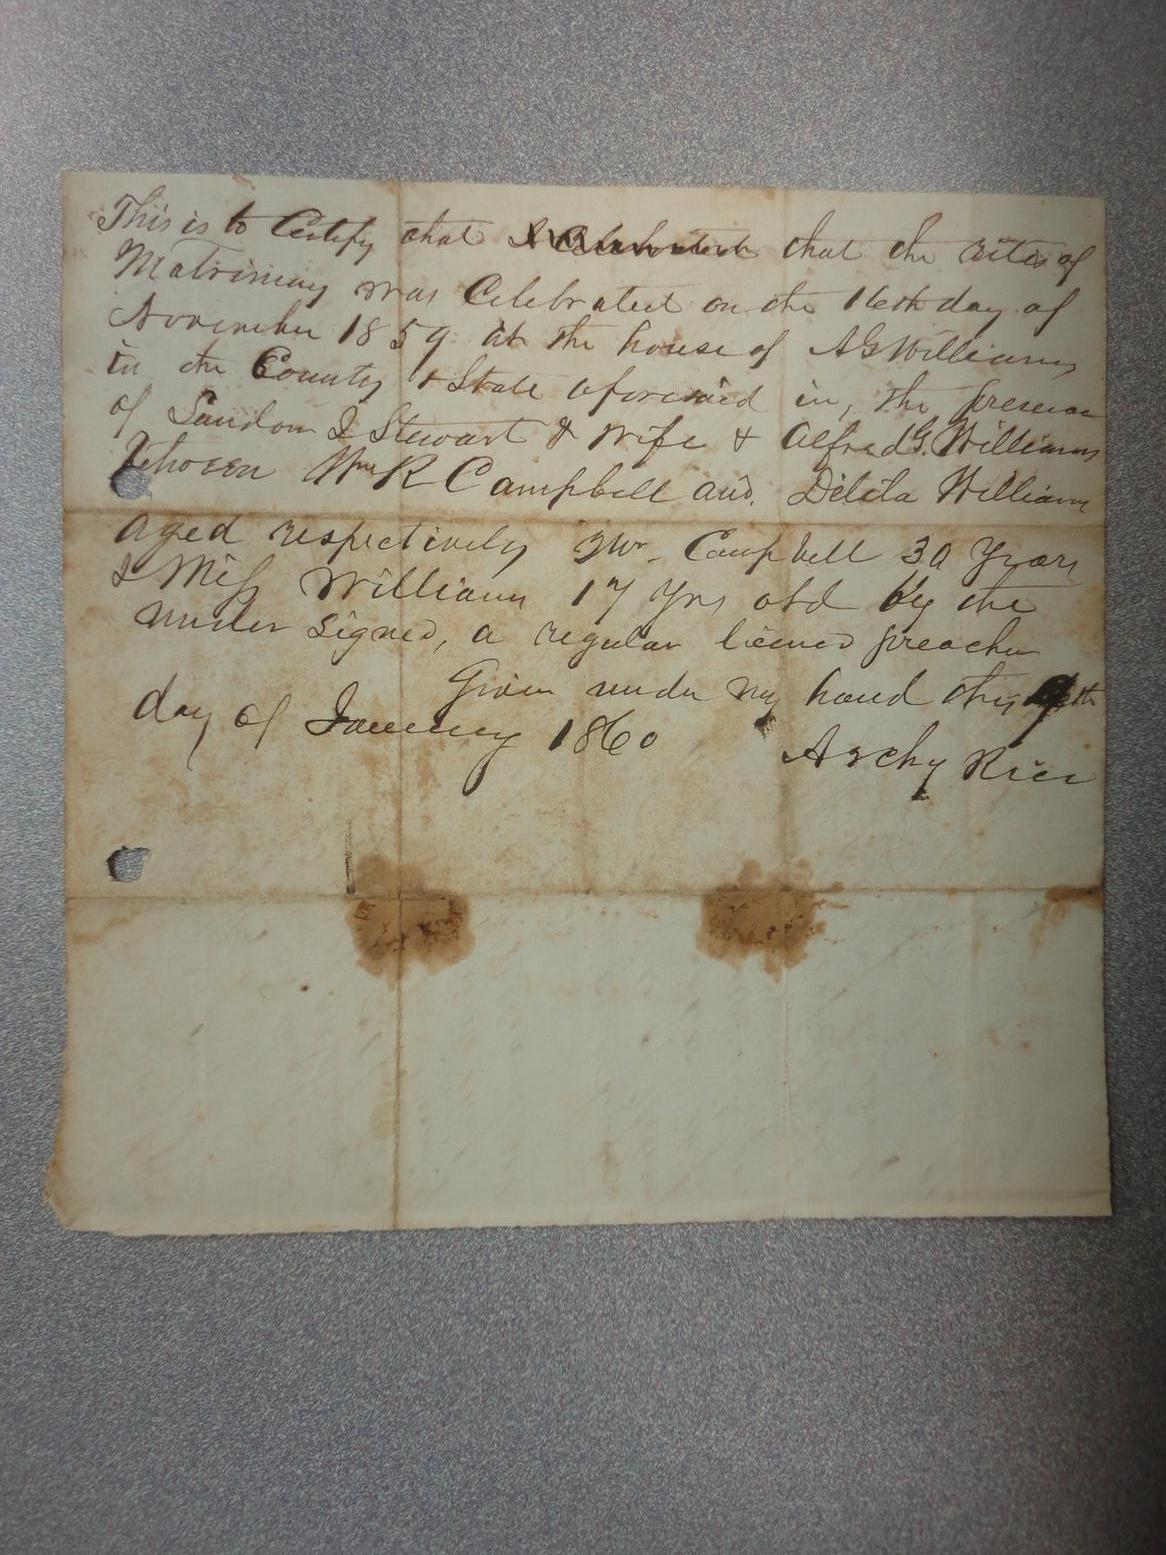 This is to Certify that that the rites of
Matrimony was Celebrated on the 16th day of
November 1859 at the house of A G Williams
in the County & State aforesaid in, the presence
of Landon J Stewart & wife & Alfred G. Williams
Wm R Campbell and. Delila Williams
aged respectively Mr. Campbell 30 Years
& Miss Williams 17 Yrs old by the
under signed, a regular licened preacher
Given under my hand this
day of January 1860
Archy Rice